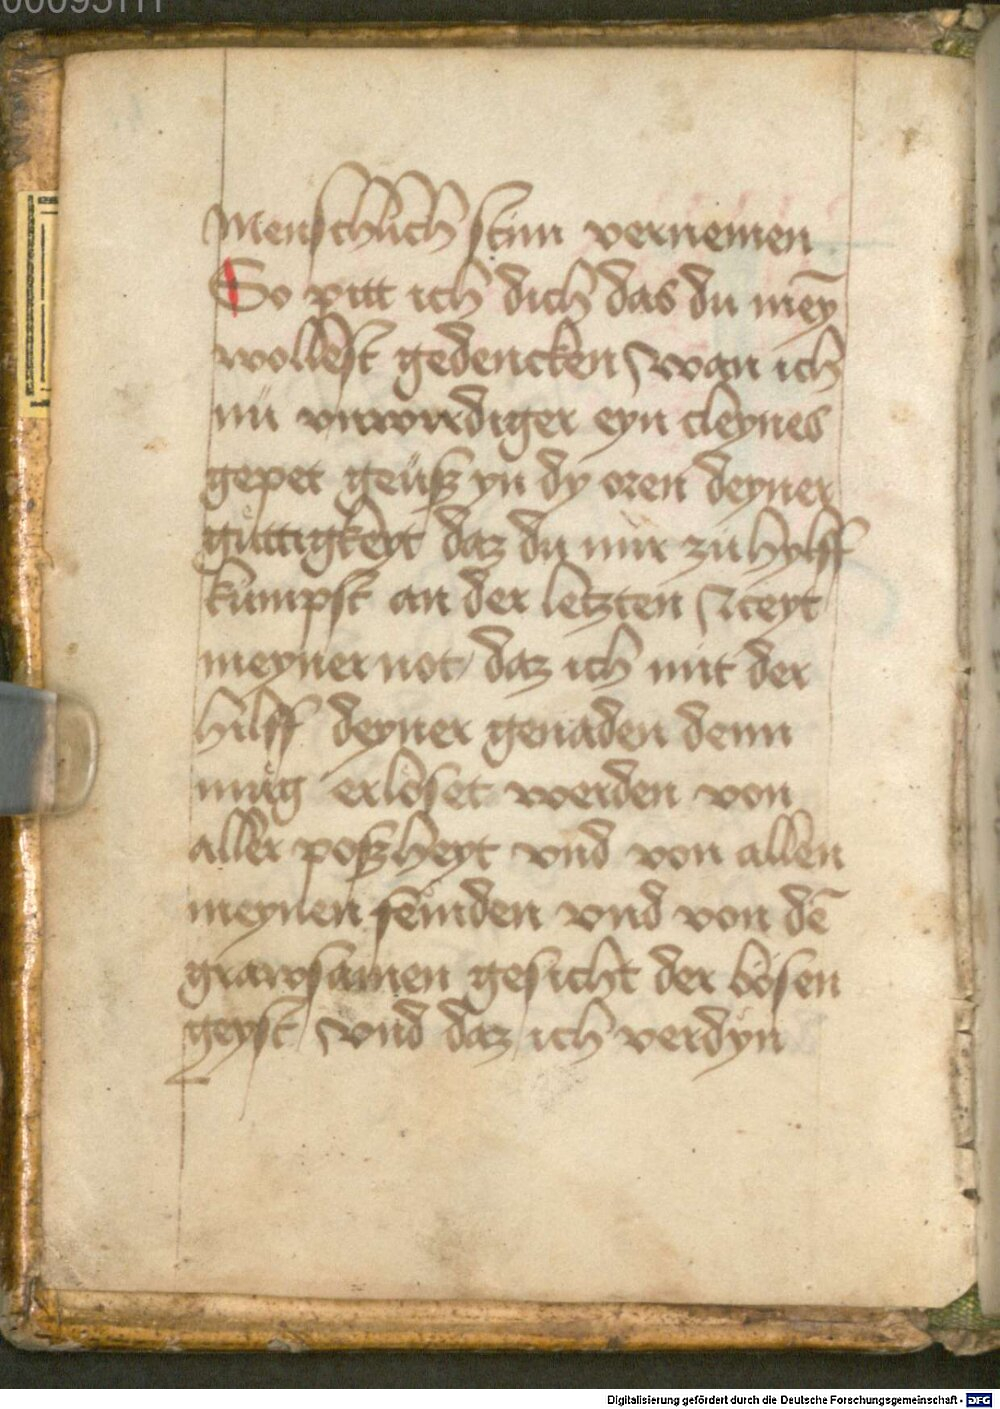 Menschlich stim vernemen
So pitt ich dich das du mey̅
wollest gedencken wan ich
nü vnwirdiger eyn cleynes
gepet geüsz yn dy oren deyner
guttigkeyt daz du mir zu hylff
kumpst an der letzten zceyt
meyner not daz ich mit der
hilff deyner genaden denn
müg erlöset werden von
aller poszheyt vnd von allen
meynen feinden vnd von de̅
grawsamen gesicht der bösen
geyst vnd daz ich verdyn
Digitalisierung gefördert durch die Deutsche Forschungsgemeinschaft - DFG